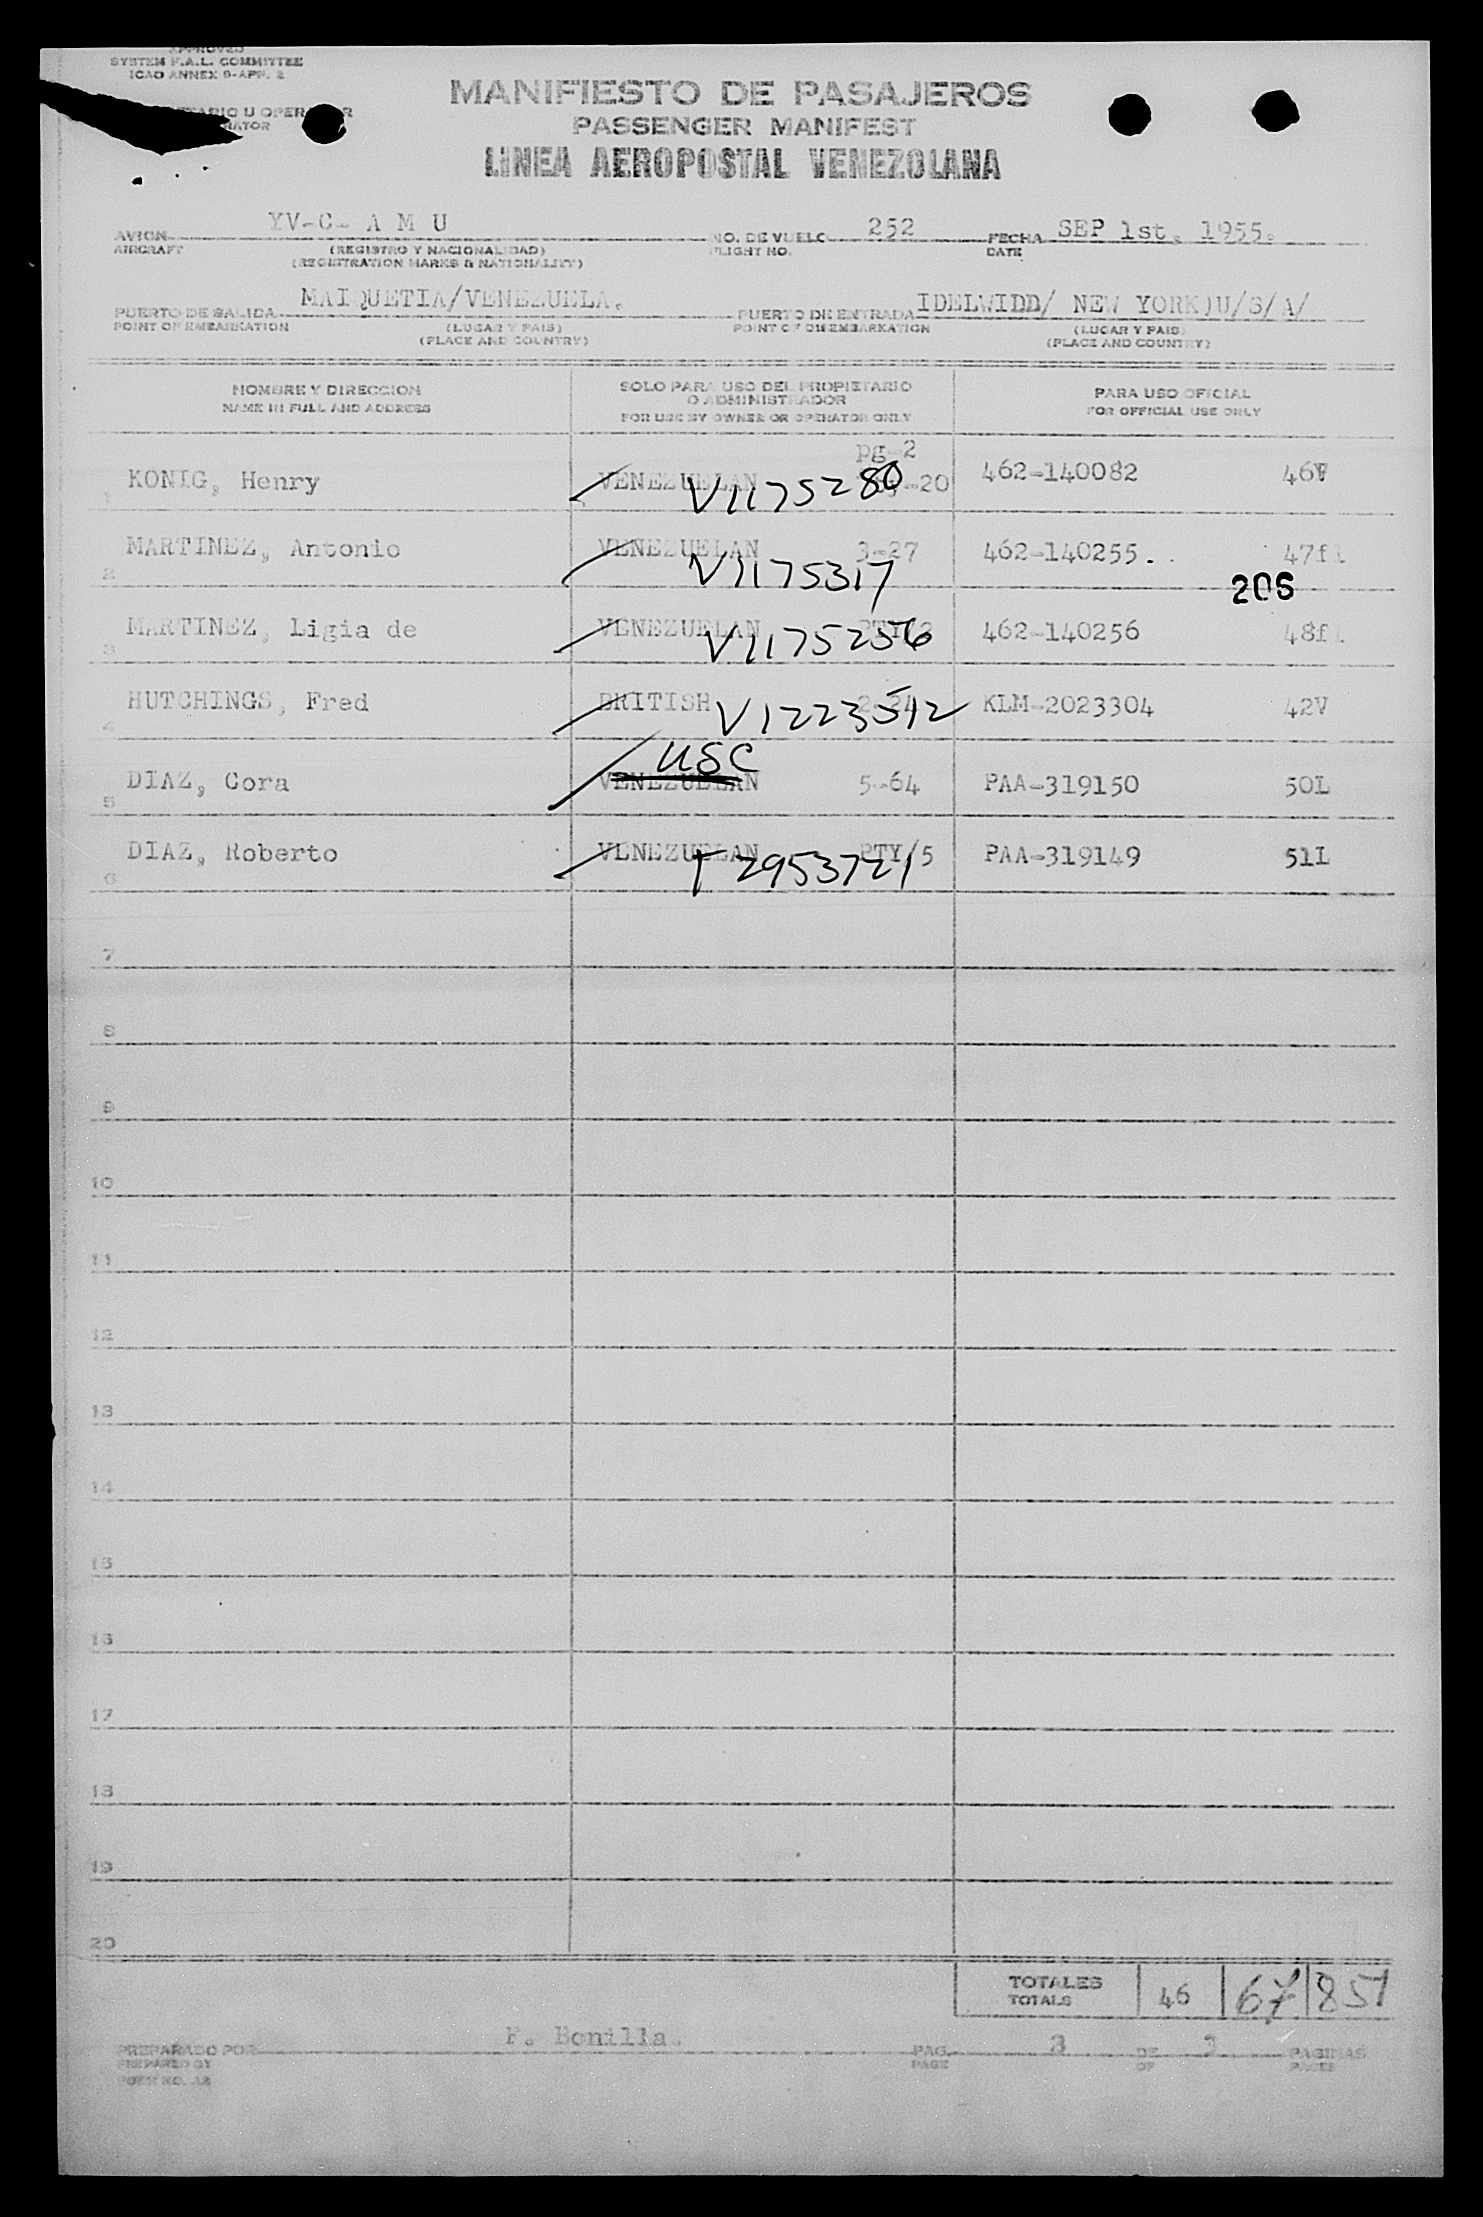 APPROVED
SYSTEM F.A.L. COMMITTEE
ICAO ANNEX 9-APP. 2
MANIFIESTO DE PASAJEROS
PASSENGER MANIFEST
LINEA AEROPOSTAL VENEZOLANA
AVION YV-C- A M U NO. DE VUELO 252 FECHA SEP 1st, 1955.
AIRCRAFT (REGISTRO Y NACIONALIDAD) FLIGHT NO. DATE
(REGISTRATION MARKS & NATIONALITY)
PUERTO DE SALIDA MAIQUETIA/VENEZUELA. PUERTO DE ENTRADA IDELWIDD/ NEW YORK)U/S/A/
POINT OF EMBARKATION (LUGAR Y PAIS) POINT OF DISEMBARKATION (LUGAR Y PAIS)
(PLACE AND COUNTRY) (PLACE AND COUNTRY)
NOMBRE Y DIRECCION SOLO PARA USO DEL PROPIETARIO PARA USO OFICIAL
NAME IN FULL AND ADDRESS O ADMINISTRADOR FOR OFFICIAL USE ONLY
FOR USE BY OWNER OR OPERATOR ONLY
pg-2
1 KONIG, Henry VENEZUELAN V1175280 -20 462-140082 46V
2 MARTINEZ, Antonio VENEZUELAN 3-27 V1175317 462-140255. 47fl
206
3 MARTINEZ, Ligia de VENEZUELAN V1175256 462-140256 48fl
4 HUTCHINGS, Fred BRITISH V1223512 KLM-2023304 42V
USC
5 DIAZ, Cora VENEZUELAN 5-64 PAA-319150 50L
6 DIAZ, Roberto VENEZUELAN PTY/5 T2953721 PAA-319149 51L
7
8
9
10
11
12
13
14
15
16
17
18
19
20
TOTALES 46 67 851
TOTALS
PREPARADO POR F. Bonilla. PAG. 3 DE 3 PAGINAS
PREPARED BY PAGE OF PAGES
FORM NO.